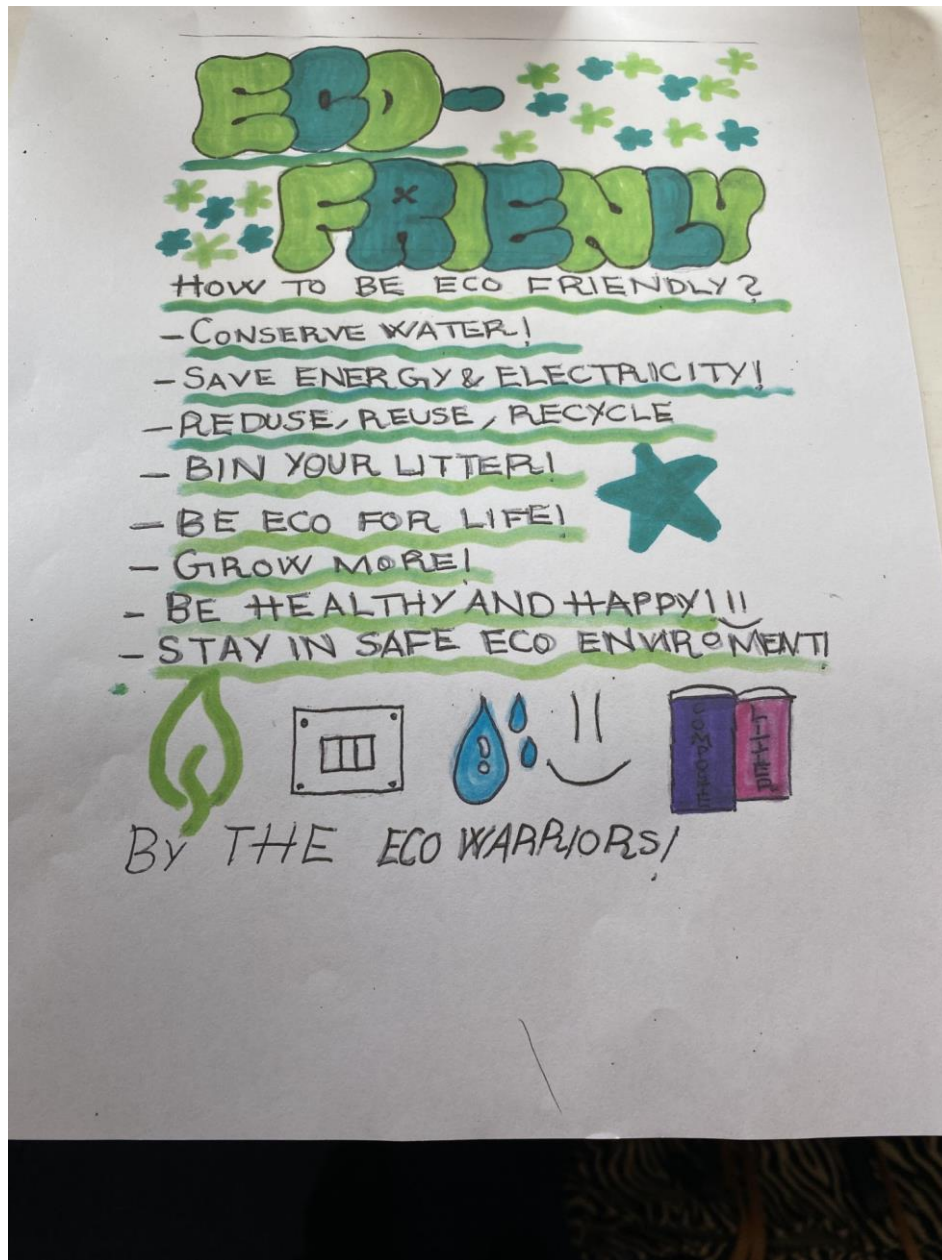 ECO-
FRIENLY
HOW TO BE ECO FRIENDLY?
- CONSERVE WATER!
- SAVE ENERGY & ELECTRICITY!
- REDUSE, REUSE, RECYCLE
- BIN YOUR LITTER!
- BE ECO FOR LIFE!
- GROW MORE!
- BE HEALTHY AND HAPPY!!!
- STAY IN SAFE ECO ENVIROMENT!
LITTER
BY THE ECO WARRIORS!